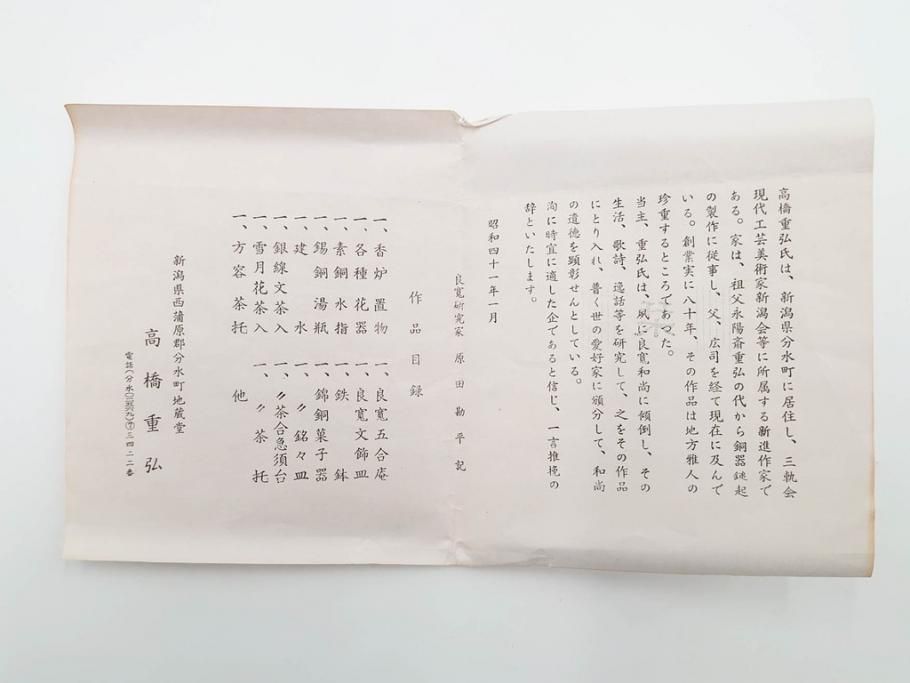 高橋重弘氏は、新潟県分水町に居住し、三軌会
現代工芸美術家新潟会等に所属する新進作家で
ある。家は、祖父永陽斎重弘の代から銅器鎚起
の製作に従事し、父、広司を経て現在に及んで
いる。創業実に八十年、その作品は地方雅人の
珍重するところであつた。
当主、重弘氏は、夙に良寛和尚に傾倒し、その
生活、歌詩、逸話等を研究して、之をその作品
にとり入れ、普く世の愛好家に頒分して、和尚
の遺徳を顕彰せんとしている。
洵に時宜に適した企であると信じ、一言推挽の
辞といたします。
昭和四十一年一月
良寛研究家 原田勘平記
作品目録
一、香炉置物 一、良寛五合庵
一、各種花器 一、良寛文飾皿
一、素銅水指 一、鉄鉢
一、錫銅湯瓶 一、錦銅菓子器
一、建水 一、〃銘々皿
一、銀線文茶入 一、〃茶合急須台
一、雪月花茶入 一、〃茶托
一、方容茶托 他
新潟県西蒲原郡分水町地蔵堂
高橋重弘
電話(分水)三四二二番